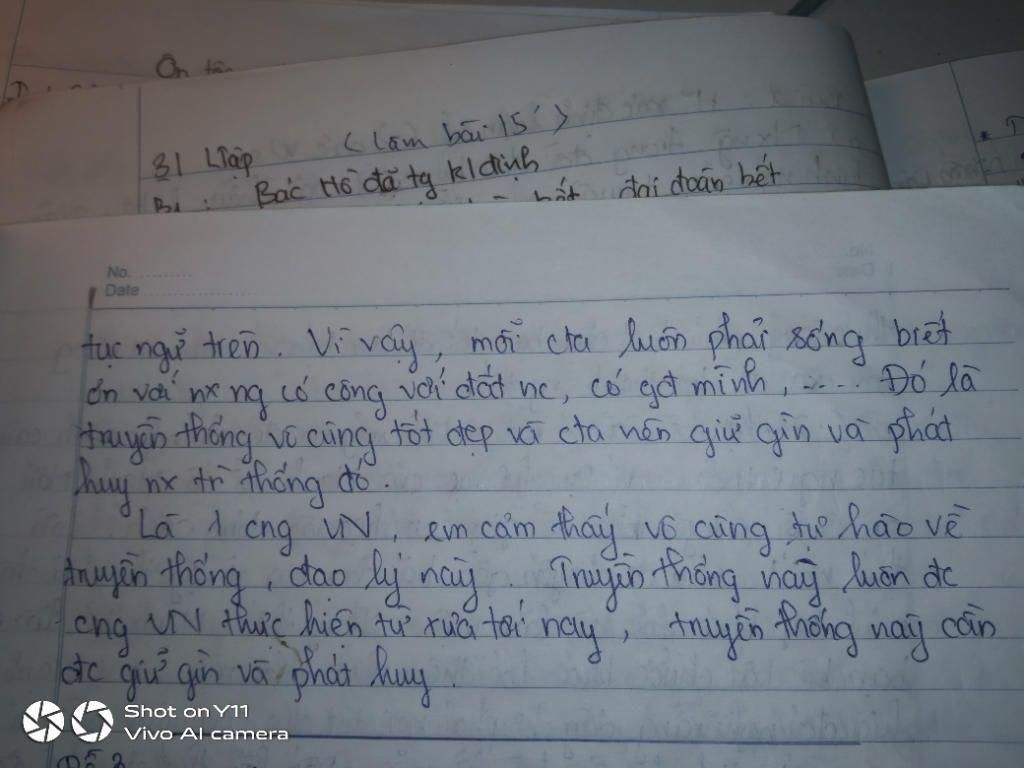 Ôn tập
(Làm bài 15')
3| LTập
Bác Hồ đã tg kl định
B1 :
đại đoàn kết
No. ............
Date ......................
tục ngữ trên. Vì vậy, mỗi cta luôn phải sống biết
ơn với nx ng có công với đất nc, có gđ mình, .... Đó là
truyền thống vô cùng tốt đẹp và cta nên giữ gìn và phát
huy nx tr thống đó.
Là 1 cng VN, em cảm thấy vô cùng tự hào về
truyền thống, đạo lý này. Truyền thống này luôn đc
cng VN thực hiện từ xưa tới nay, truyền thống này cần
đc giữ gìn và phát huy.
Shot on Y11
Vivo AI camera